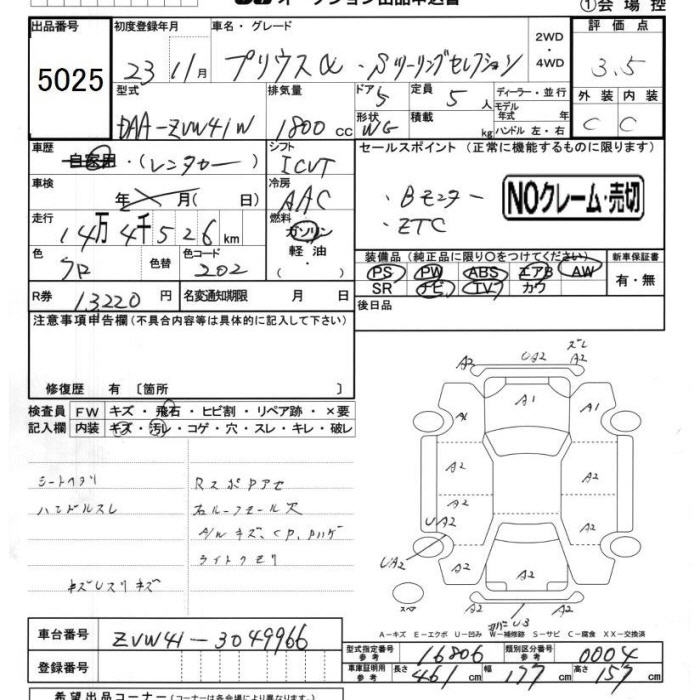 オークション出品申込書
①会場控
出品番号 初度登録年月 車名・グレード 2WD・4WD 評価点
5025 23 11月 プリウスα・Sツーリングセレクション 3.5
型式 排気量 ドア 5 定員 5人 ディーラー・並行 外装 内装
DAA-ZVW41W 1800cc 形状 WG 積載 kg モデル年式 年式 ハンドル 左・右 C C
車歴 自家用・(レンタカー) シフト ICVT セールスポイント (正常に機能するものに限ります)
車検 年 月(日) 冷房 AAC ・Bモニター NOクレーム・売切
走行 14万4千526km 燃料 ガソリン ・ETC
色 色替 色コード 202 軽油 ( ) 装備品 (純正品に限り○をつけてください) 新車保証書
PS PW ABS エアB AW 有・無
R券 13220円 名変通知期限 月 日 SR ナビ TV カワ
注意事項申告欄(不具合内容等は具体的に記入して下さい) 後日品
修復歴 有〔箇所 〕
検査員 FW キズ・飛石・ヒビ割・リペア跡・×要
記入欄 内装 キズ・汚レ・コゲ・穴・スレ・キレ・破レ
シートヘタリ
ハンドルスレ
ライトクモリ
A2 UA2 A2
A1
A1
A2 A2
A2 A2
UA2 A2
UA2 A2 A2
スペア
A-キズ E-エクボ U-凹み W-補修跡 S-サビ C-腐食 XX-交換済
車台番号 ZVW41-3049966
登録番号
型式指定番号 参考 16806 類別区分番号 参考 0004
車庫証明用 参考 長さ 461cm 幅 177cm 高さ 157cm
希望出品コーナー(コーナーは各会場により異なります)